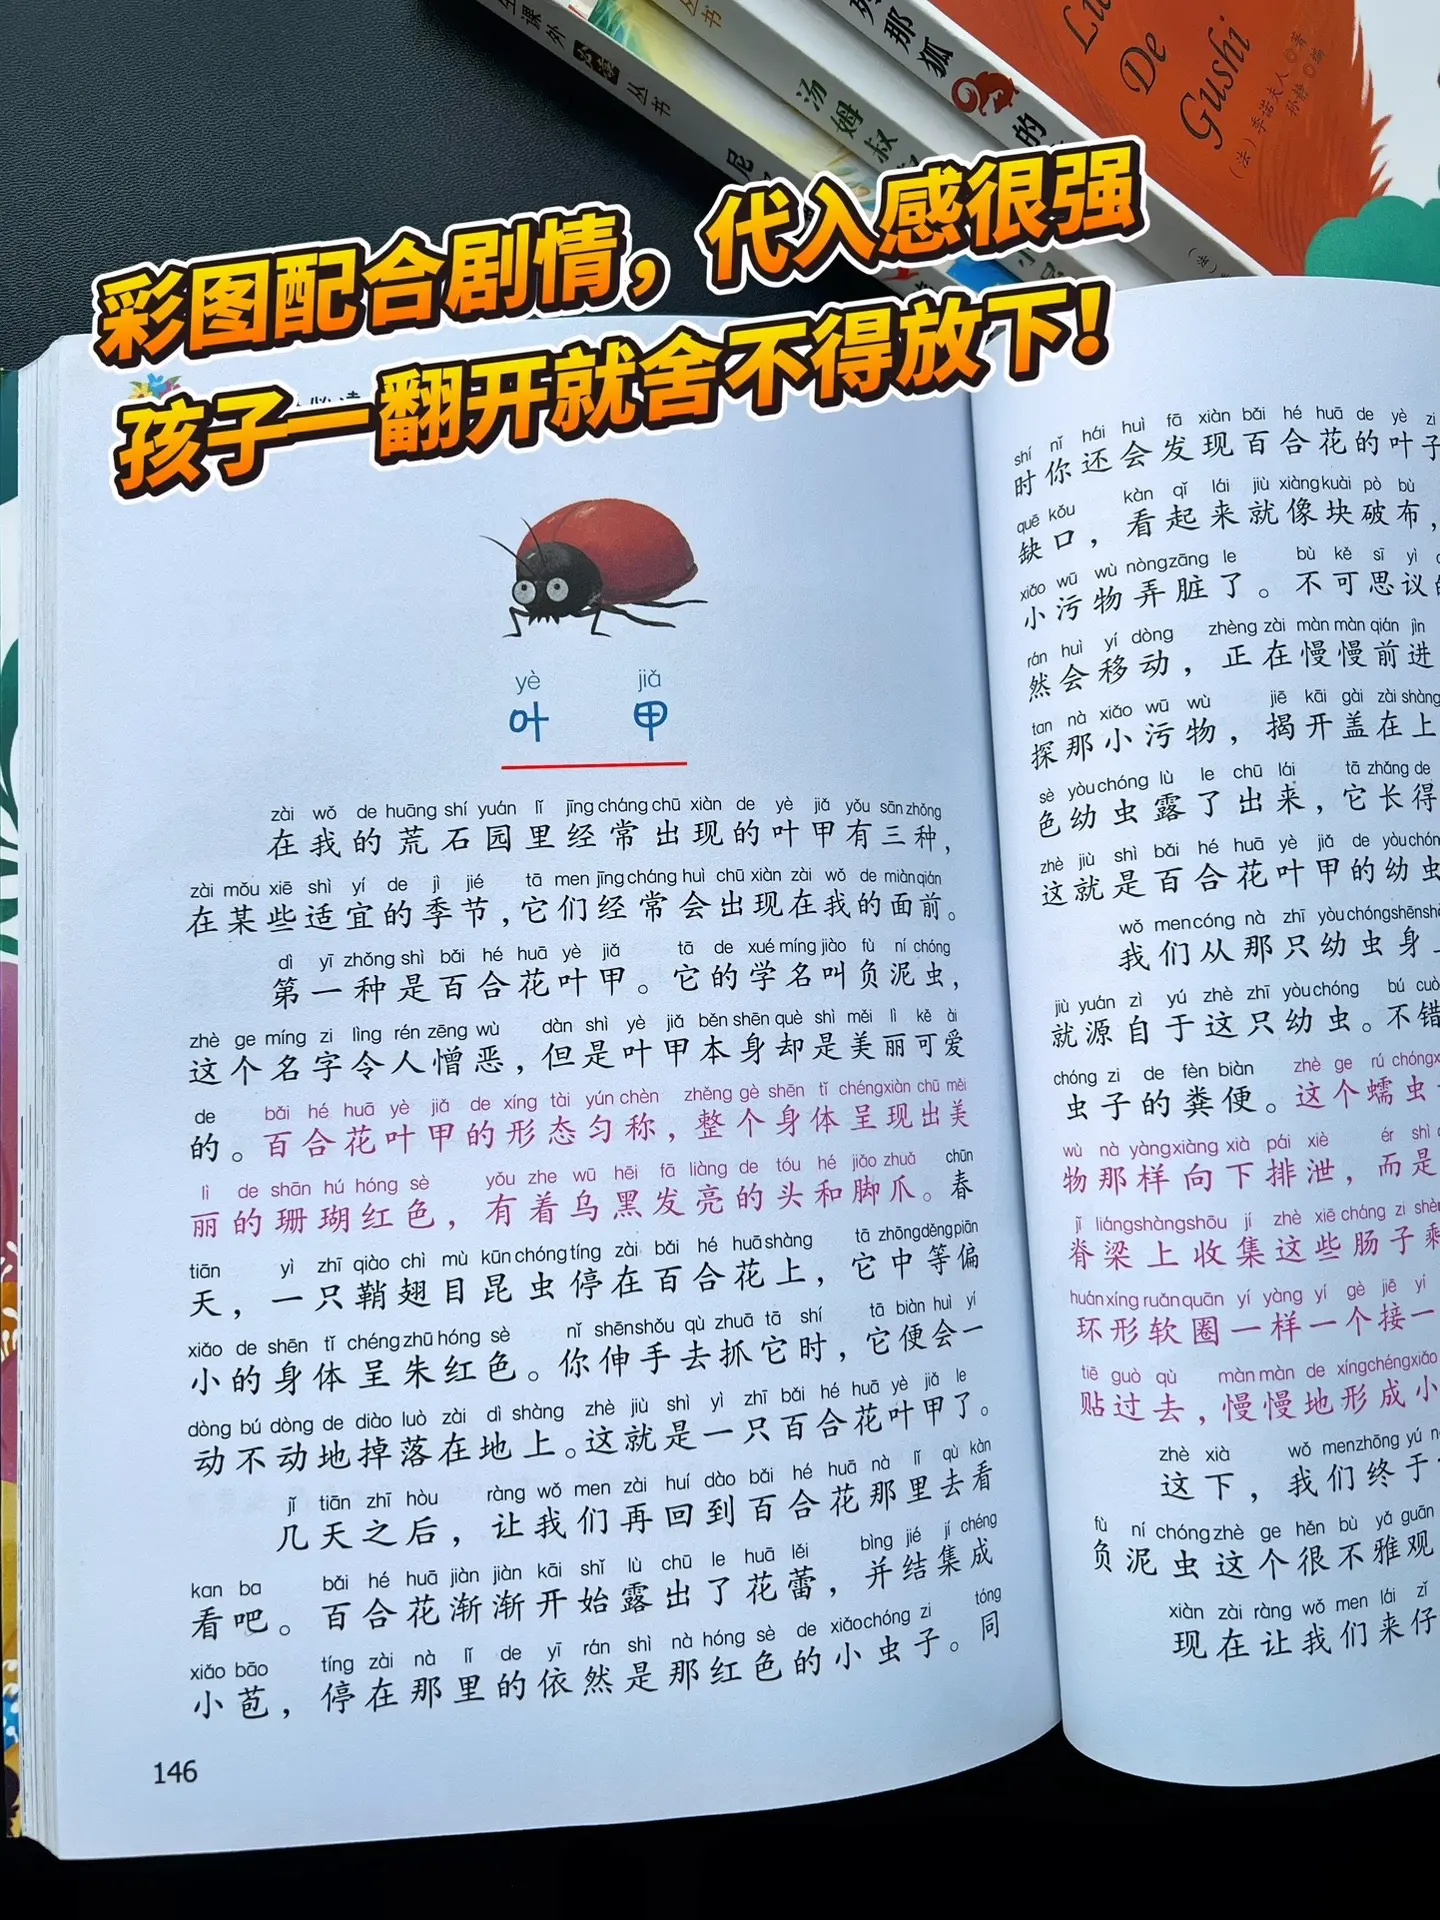 生课外必读丛书
尼
丛书
汤姆叔
列那狐的
Lu
De
Gushi
(法)季诺夫人◎著
孙静◎编
彩图配合剧情，代入感很强
孩子一翻开就舍不得放下！
yè jiǎ
叶 甲
zài wǒ de huāng shí yuán lǐ jīng cháng chū xiàn de yè jiǎ yǒu sān zhǒng
在我的荒石园里经常出现的叶甲有三种，
zài mǒu xiē shì yí de jì jié tā men jīng cháng huì chū xiàn zài wǒ de miàn qián
在某些适宜的季节，它们经常会出现在我的面前。
dì yī zhǒng shì bǎi hé huā yè jiǎ tā de xué míng jiào fù ní chóng
第一种是百合花叶甲。它的学名叫负泥虫，
zhè ge míng zi lìng rén zēng wù dàn shì yè jiǎ běn shēn què shì měi lì kě ài
这个名字令人憎恶，但是叶甲本身却是美丽可爱
de bǎi hé huā yè jiǎ de xíng tài yún chèn zhěng gè shēn tǐ chéng xiàn chū měi
的。百合花叶甲的形态匀称，整个身体呈现出美
lì de shān hú hóng sè yǒu zhe wū hēi fā liàng de tóu hé jiǎo zhuǎ chūn
丽的珊瑚红色，有着乌黑发亮的头和脚爪。春
tiān yì zhī qiào chì mù kūn chóng tíng zài bǎi hé huā shàng tā zhōng děng piān
天，一只鞘翅目昆虫停在百合花上，它中等偏
xiǎo de shēn tǐ chéng zhū hóng sè nǐ shēn shǒu qù zhuā tā shí tā biàn huì yí
小的身体呈朱红色。你伸手去抓它时，它便会一
dòng bú dòng de diào luò zài dì shàng zhè jiù shì yì zhī bǎi hé huā yè jiǎ le
动不动地掉落在地上。这就是一只百合花叶甲了。
jǐ tiān zhī hòu ràng wǒ men zài huí dào bǎi hé huā nà lǐ qù kàn
几天之后，让我们再回到百合花那里去看
kan ba bǎi hé huā jiàn jiàn kāi shǐ lù chū le huā lěi bìng jié jí chéng
看吧。百合花渐渐开始露出了花蕾，并结集成
xiǎo bāo tíng zài nà lǐ de yī rán shì nà hóng sè de xiǎo chóng zi tóng
小苞，停在那里的依然是那红色的小虫子。同
146
shí nǐ hái huì fā xiàn bǎi hé huā de yè zi
时你还会发现百合花的叶子
quē kǒu kàn qǐ lái jiù xiàng kuài pò bù
缺口，看起来就像块破布，
xiǎo wū wù nòng zāng le bù kě sī yì
小污物弄脏了。不可思议
rán huì yí dòng zhèng zài màn màn qián jìn
然会移动，正在慢慢前进
tan nà xiǎo wū wù jiē kāi gài zài shàng
探那小污物，揭开盖在上
sè yòu chóng lù le chū lái tā zhǎng de
色幼虫露了出来，它长得
zhè jiù shì bǎi hé huā yè jiǎ de yòu chóng
这就是百合花叶甲的幼虫
wǒ men cóng nà zhī yòu chóng shēn shàng
我们从那只幼虫身上
jiù yuán zì yú zhè zhī yòu chóng bú cuò
就源自于这只幼虫。不错
chóng zi de fèn biàn zhè ge rú chóng
虫子的粪便。这个蠕虫
wù nà yàng xiàng xià pái xiè ér shì
物那样向下排泄，而是
jǐ liáng shàng shōu jí zhè xiē cháng zi shèng
脊梁上收集这些肠子剩
huán xíng ruǎn quān yí yàng yí gè jiē yí
环形软圈一样一个接一
tiē guò qù màn màn de xíng chéng xiǎo
贴过去，慢慢地形成小
zhè xià wǒ men zhōng yú
这下，我们终于
fù ní chóng zhè ge hěn bù yǎ guān
负泥虫这个很不雅观
xiàn zài ràng wǒ men lái zǐ
现在让我们来仔